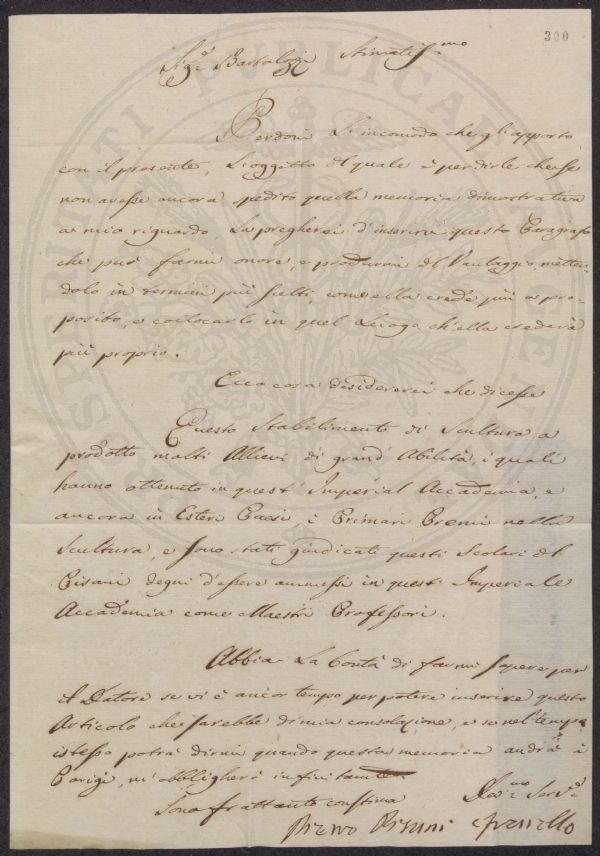 300
Sig.e Bartolozzi Stimatiss.mo
Perdoni L'incomodo che gl'apporto
con il presente, L'oggetto del quale è per dirle che se
non avesse ancora spedito quella memoria dimostrativa
a mio riguardo, La pregherei d'inserirvi questo Paragrafo
che può farmi onore, e produrmi del Vantaggio, metten-
dolo in termini più scelti, come ella crede più a pro-
posito, e collocarlo in quel Luogo ch'ella crederà
più proprio.
Ecco cosa desidererei che dicesse
Questo Stabilimento di Scultura a
prodotto molti Allievi di grand'Abilità, i quali
hanno ottenuto in quest'Imperial Accademia, e
ancora in Esteri Paesi i Primari Premi nella
Scultura, e sono stati giudicati questi Scolari del
Pisani degni d'essere ammessi in quest'Imperiale
Accademia come Maestri Professori.
Abbia La bontà di farmi sapere per
il Datore se vi è ancor tempo per potere inserire questo
Articolo che sarebbe di mia consolazione, e se nel tempo
istesso potrà dirmi quando questa memoria andrà a
Parigi, m'obbligherà infinitamente
Sono frattanto con stima Dev.mo Serv.e
Pisani e fratello